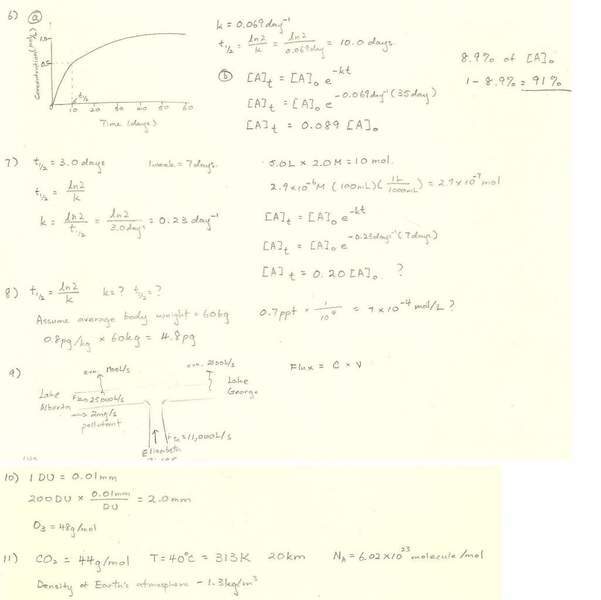 6) a
Concentration (mol/L)
1.0
0.5
t1/2
0 10 20 30 40 50 60
Time (days)
k = 0.069 day⁻¹
t1/2 = ln2/k = ln2/0.069day = 10.0 days
b [A]t = [A]o e^-kt
[A]t = [A]o e^-0.069day⁻¹(35day)
[A]t = 0.089 [A]o
8.9% of [A]o
1 - 8.9% = 91%
7) t1/2 = 3.0 days 1 week = 7 days
t1/2 = ln2/k
k = ln2/t1/2 = ln2/3.0days = 0.23 day⁻¹
5.0L × 2.0M = 10 mol
2.9×10⁻⁶M (100mL)(1L/1000mL) = 2.9×10⁻⁷mol
[A]t = [A]o e^-kt
[A]t = [A]o e^-0.23days⁻¹(7days)
[A]t = 0.20 [A]o ?
8) t1/2 = ln2/k k = ? t1/2 = ?
Assume average body weight = 60kg
0.8pg/kg × 60kg = 4.8pg
0.7ppt = = 7×10⁻⁴ mol/L ?
9)
Lake Alberta
25000L/s
→ 2mg/s pollutant
2100L/s
Lake George
= 11,000L/s
Elizabeth
Flux = C × V
10) 1 DU = 0.01mm
200DU × 0.01mm/DU = 2.0mm
O3 = 48g/mol
11) CO2 = 44g/mol T=40°C = 313K 20km NA = 6.02×10²³ molecule/mol
Density of Earth's atmosphere - 1.3kg/m³